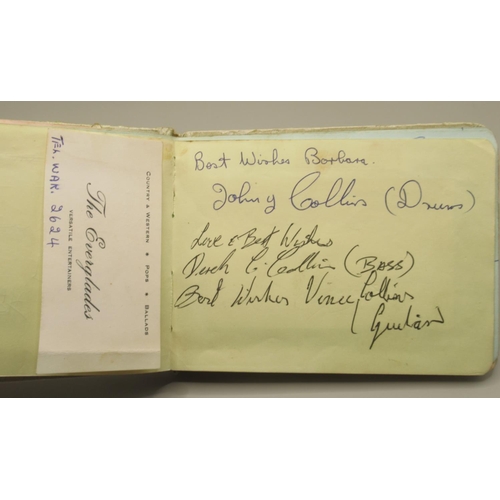 COUNTRY & WESTERN ★ POPS ★ BALLADS
The Everglades
VERSATILE ENTERTAINERS
TEL. WAR. 2624
Best Wishes Barbara.
Johny Collins (Drums)
Love & Best Wishes
Derek C. Collins (BASS)
Best Wishes Vince Collins
(Guitar)